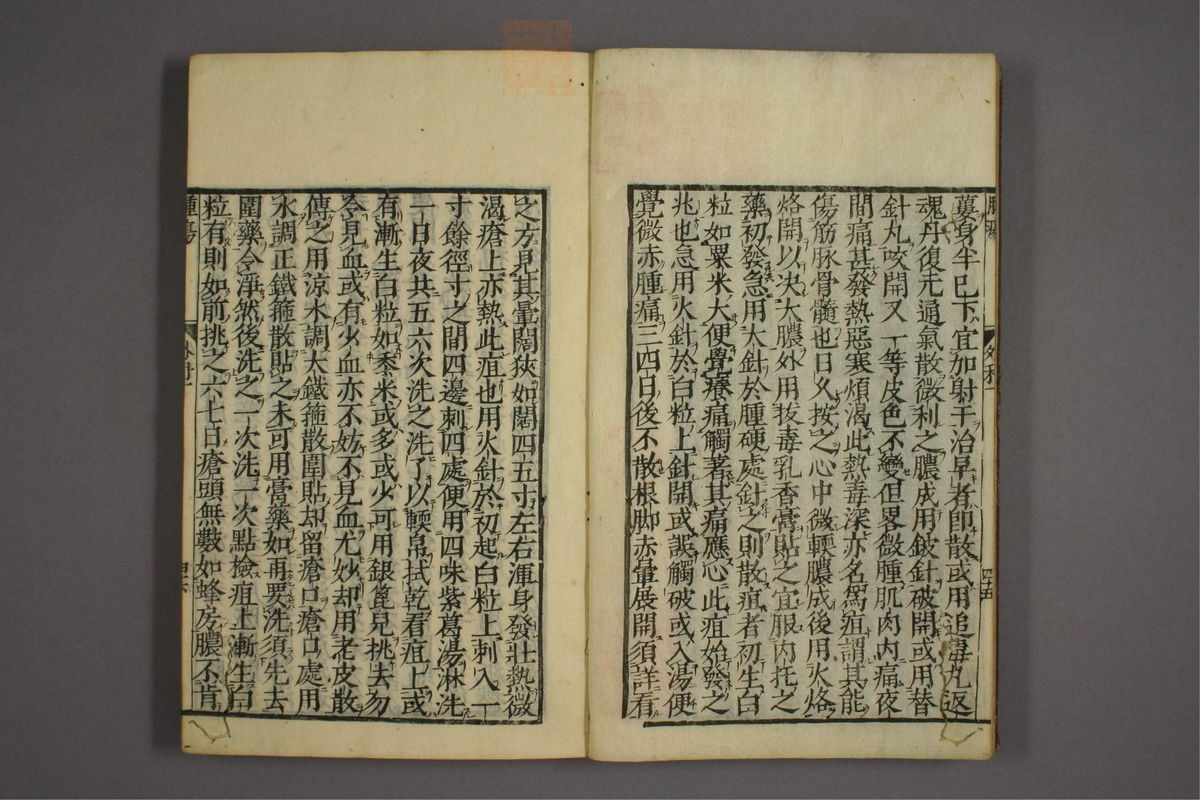 蟇身半已下宜加射干治早者即散或用追毒丸返
魂丹復元通氣散微利之膿成用鈹針破開或用替
針丸咬開又一等皮色不變但畧微腫肌肉内痛夜
間痛甚發熱惡寒煩渴此熱毒深亦名爲疽謂其能
傷筋脉骨髓也日久按之心中微輭膿成後用火烙
烙開以决大膿外用拔毒乳香膏貼之宜服内托之
藥初發急用大針於腫硬處針之則散疽者初生白
粒如粟米大便覺癢痛觸著其痛應心此疽始發之
兆也急用火針於白粒上針開或誤觸破或入湯便
覺微赤腫痛三四日後不散根脚赤暈展開須詳看
之方見其暈闊狹如闊四五寸左右渾身發壯熱微
渴瘡上亦熱此疽也用火針於初起白粒上刺入一
寸餘徑寸之間四邊刺四處便用四味紫葛湯淋洗
一日夜共五六次洗之洗了以輭帛拭乾看疽上或
有漸生白粒如黍米或多或少可用銀篦兒挑去勿
令見血或有少血亦不妨不見血尤妙却用老皮散
傅之用涼水調大鐵箍散圍貼却留瘡口瘡口處用
水調正鐵箍散貼之未可用膏藥如再要洗須先去
圍藥令淨然後洗之一次洗二次點檢疽上漸生白
粒有則如前挑之六七日瘡頭無數如蜂房膿不肯
腫瘍